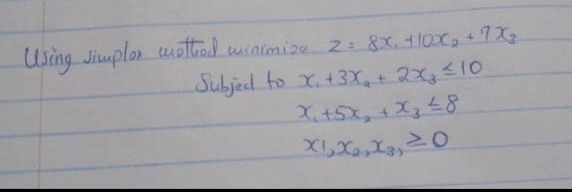 Using simplex method minimize Z = 8x₁ + 10x₂ + 7x₃
Subject to x₁ + 3x₂ + 2x₃ ≤ 10
x₁ + 5x₂ + x₃ ≤ 8
x1, x₂, x₃, ≥ 0